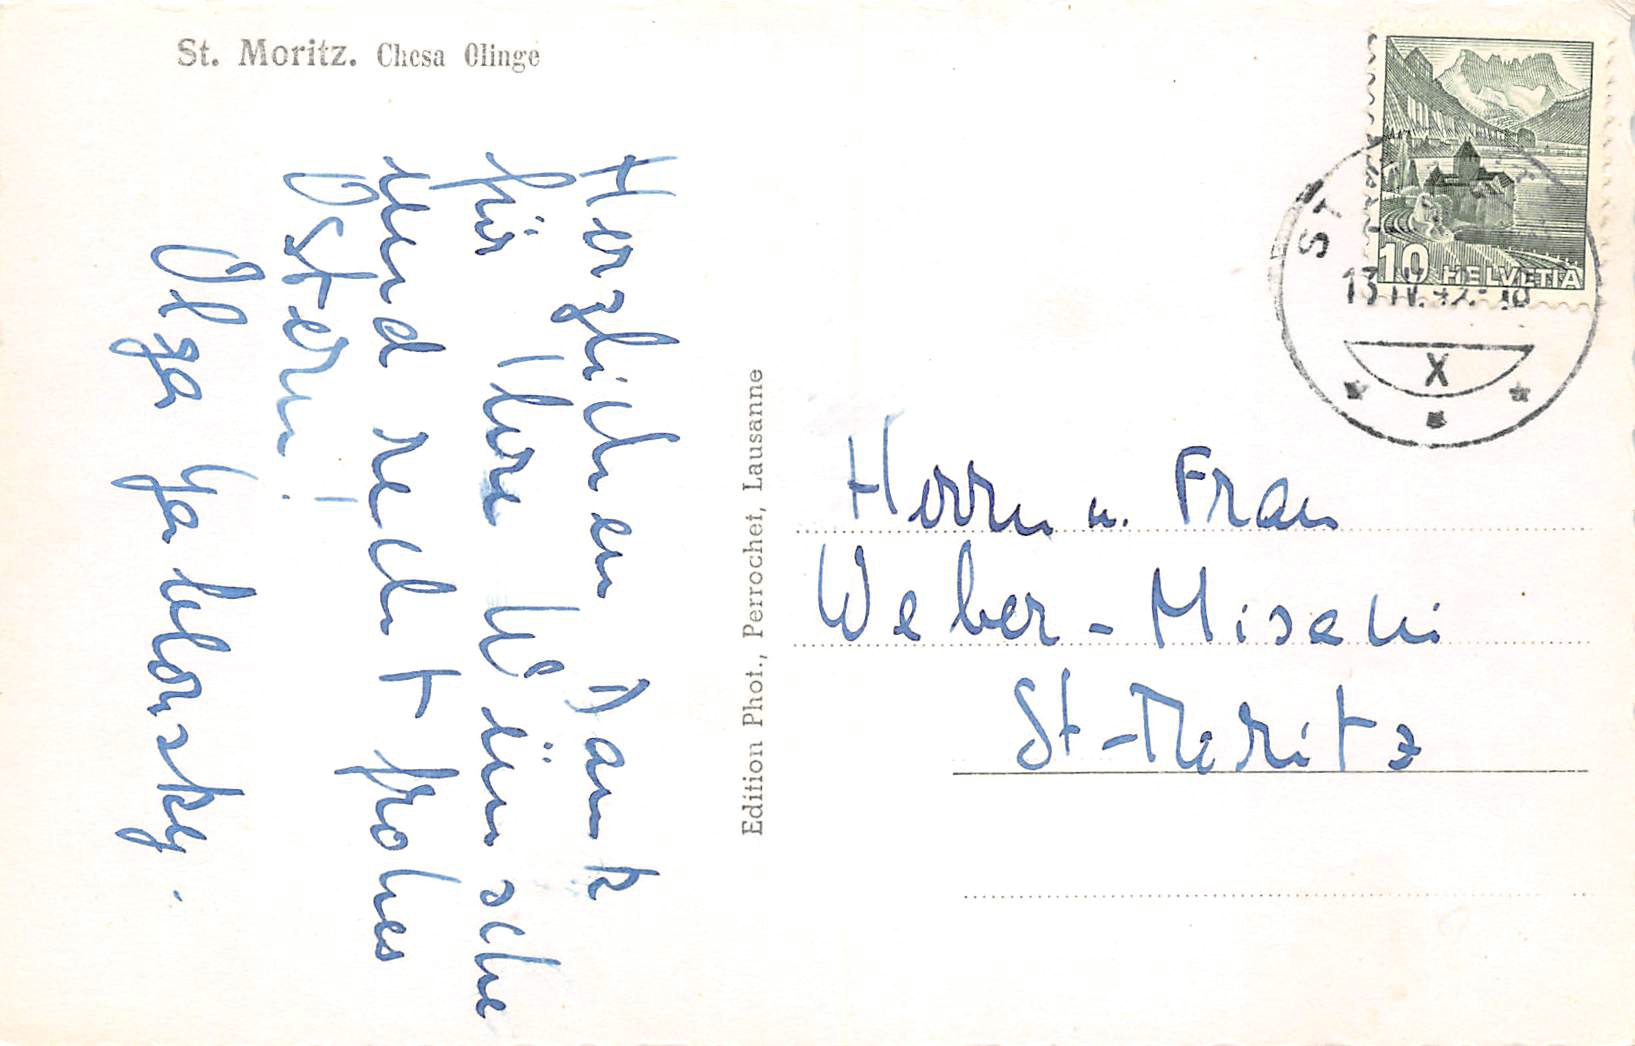 St. Moritz. Chesa Olinge
Herzlichen Dank
für Ihre Wünsche
und recht frohes
Ostern!
Olga Jablonsky.
Edition Phot., Perrochet, Lausanne
10 HELVETIA
ST
13.IV.42.-18
X
Herrn u. Frau
Weber-Misani
St-Moritz